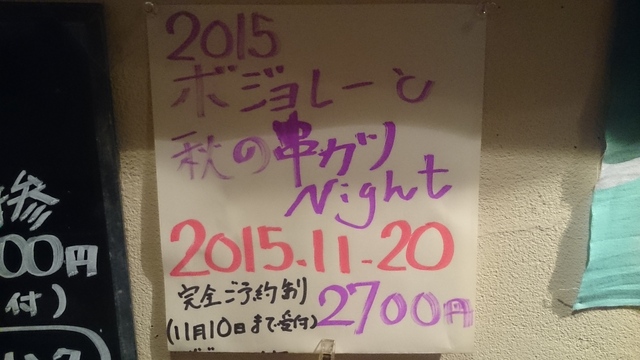 2015
ボジョレーと
秋の串カツ
Night
2015.11-20
完全ご予約制
(11月10日まで受付)
2700円
00円
付)